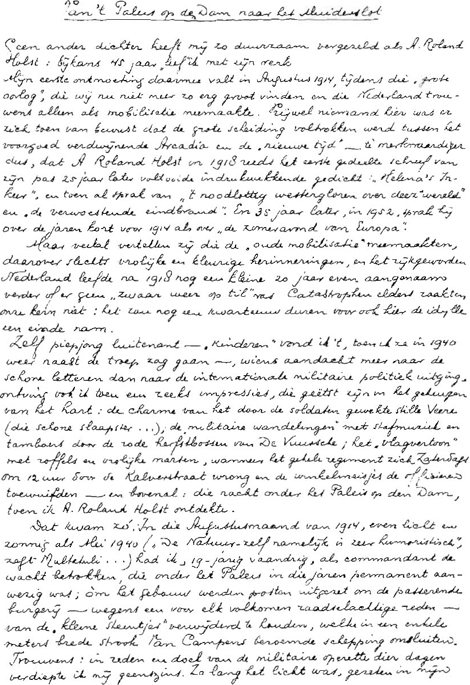 Van 't Paleis op den Dam naar het Muiderslot
Geen ander dichter heeft mij zo duurzaam vergezeld als A. Roland
Holst: bijkans 45 jaar leef ik met zijn werk
Mijn eerste ontmoeting daarmee valt in Augustus 1914, tijdens die „grote
oorlog", die wij nu niet meer zo erg groot vinden en die Nederland trou-
wens alleen als mobilisatie meemaakte. Vrijwel niemand hier was er
zich toen van bewust dat de grote scheiding voltrokken werd tussen het
voorgoed verdwijnende Arcadia en de „nieuwe tijd" — te merkwaardiger
dus, dat A Roland Holst in 1918 reeds het eerste gedeelte schreef van
zijn pas 25 jaar later voltooide indrukwekkende gedicht: „Helena's In-
keer", en toen al sprak van „'t noodlottig westergloren over deez' wereld"
en „de verwoestende eindbrand". En 35 jaar later, in 1952, sprak hij
over de jaren kort voor 1914 als over „de zomeravond van Europa".
Maar veelal vertellen zij die de „oude mobilisatie" meemaakten,
daarover slechts vrolijke en kleurige herinneringen, en het rijkgeworden
Nederland leefde na 1918 nog een kleine 20 jaar even aangenaam
verder of er geen „zwaar weer op til" was Catastrophen elders raakten
onze kern niet: het zou nog een kwarteeuw duren voor ook hier de idylle
een einde nam.
Zelf piepjong luitenant — „kinderen" vond ik 't, toen ik ze in 1940
weer naast de troep zag gaan —, wiens aandacht meer naar de
schone letteren dan naar de internationale militaire politiek uitging,
ontving ook ik toen een reeks impressies, die geëtst zijn in het geheugen
van het hart: de charme van het door de soldaten gewekte stille Veere
(die schone slaapster ...), de „militaire wandelingen" met stafmuziek en
tamboers door de rode herfstbossen van De Vuursche; het „vlagvertoon"
met roffels en vrolijke marsen, wanneer het gehele regiment zich Zaterdags
om 12 uur door de Kalverstraat wrong en de winkelmeisjes de officieren
toewuifden — en bovenal: die nacht onder het Paleis op den Dam,
toen ik A. Roland Holst ontdekte.
Dat kwam zó: In die Augustusmaand van 1914, even licht en
zonnig als Mei 1940 („De Natuur-zelf namelijk is zeer humoristisch",
zegt Multatuli ...) had ik, 19-jarig vaandrig, als commandant de
wacht betrokken, die onder het Paleis in die jaren permanent aan-
wezig was; om het gebouw werden posten uitgezet om de passerende
burgerij — wegens een voor elk volkomen raadselachtige reden —
van de „kleine steentjes" verwijderd te houden, welke in een enkele
meters brede strook Van Campens beroemde schepping omsluiten.
Trouwens: in reden en doel van de militaire operette dier dagen
verdiepte ik mij geenszins. Zo lang het licht was, gezeten in mijn